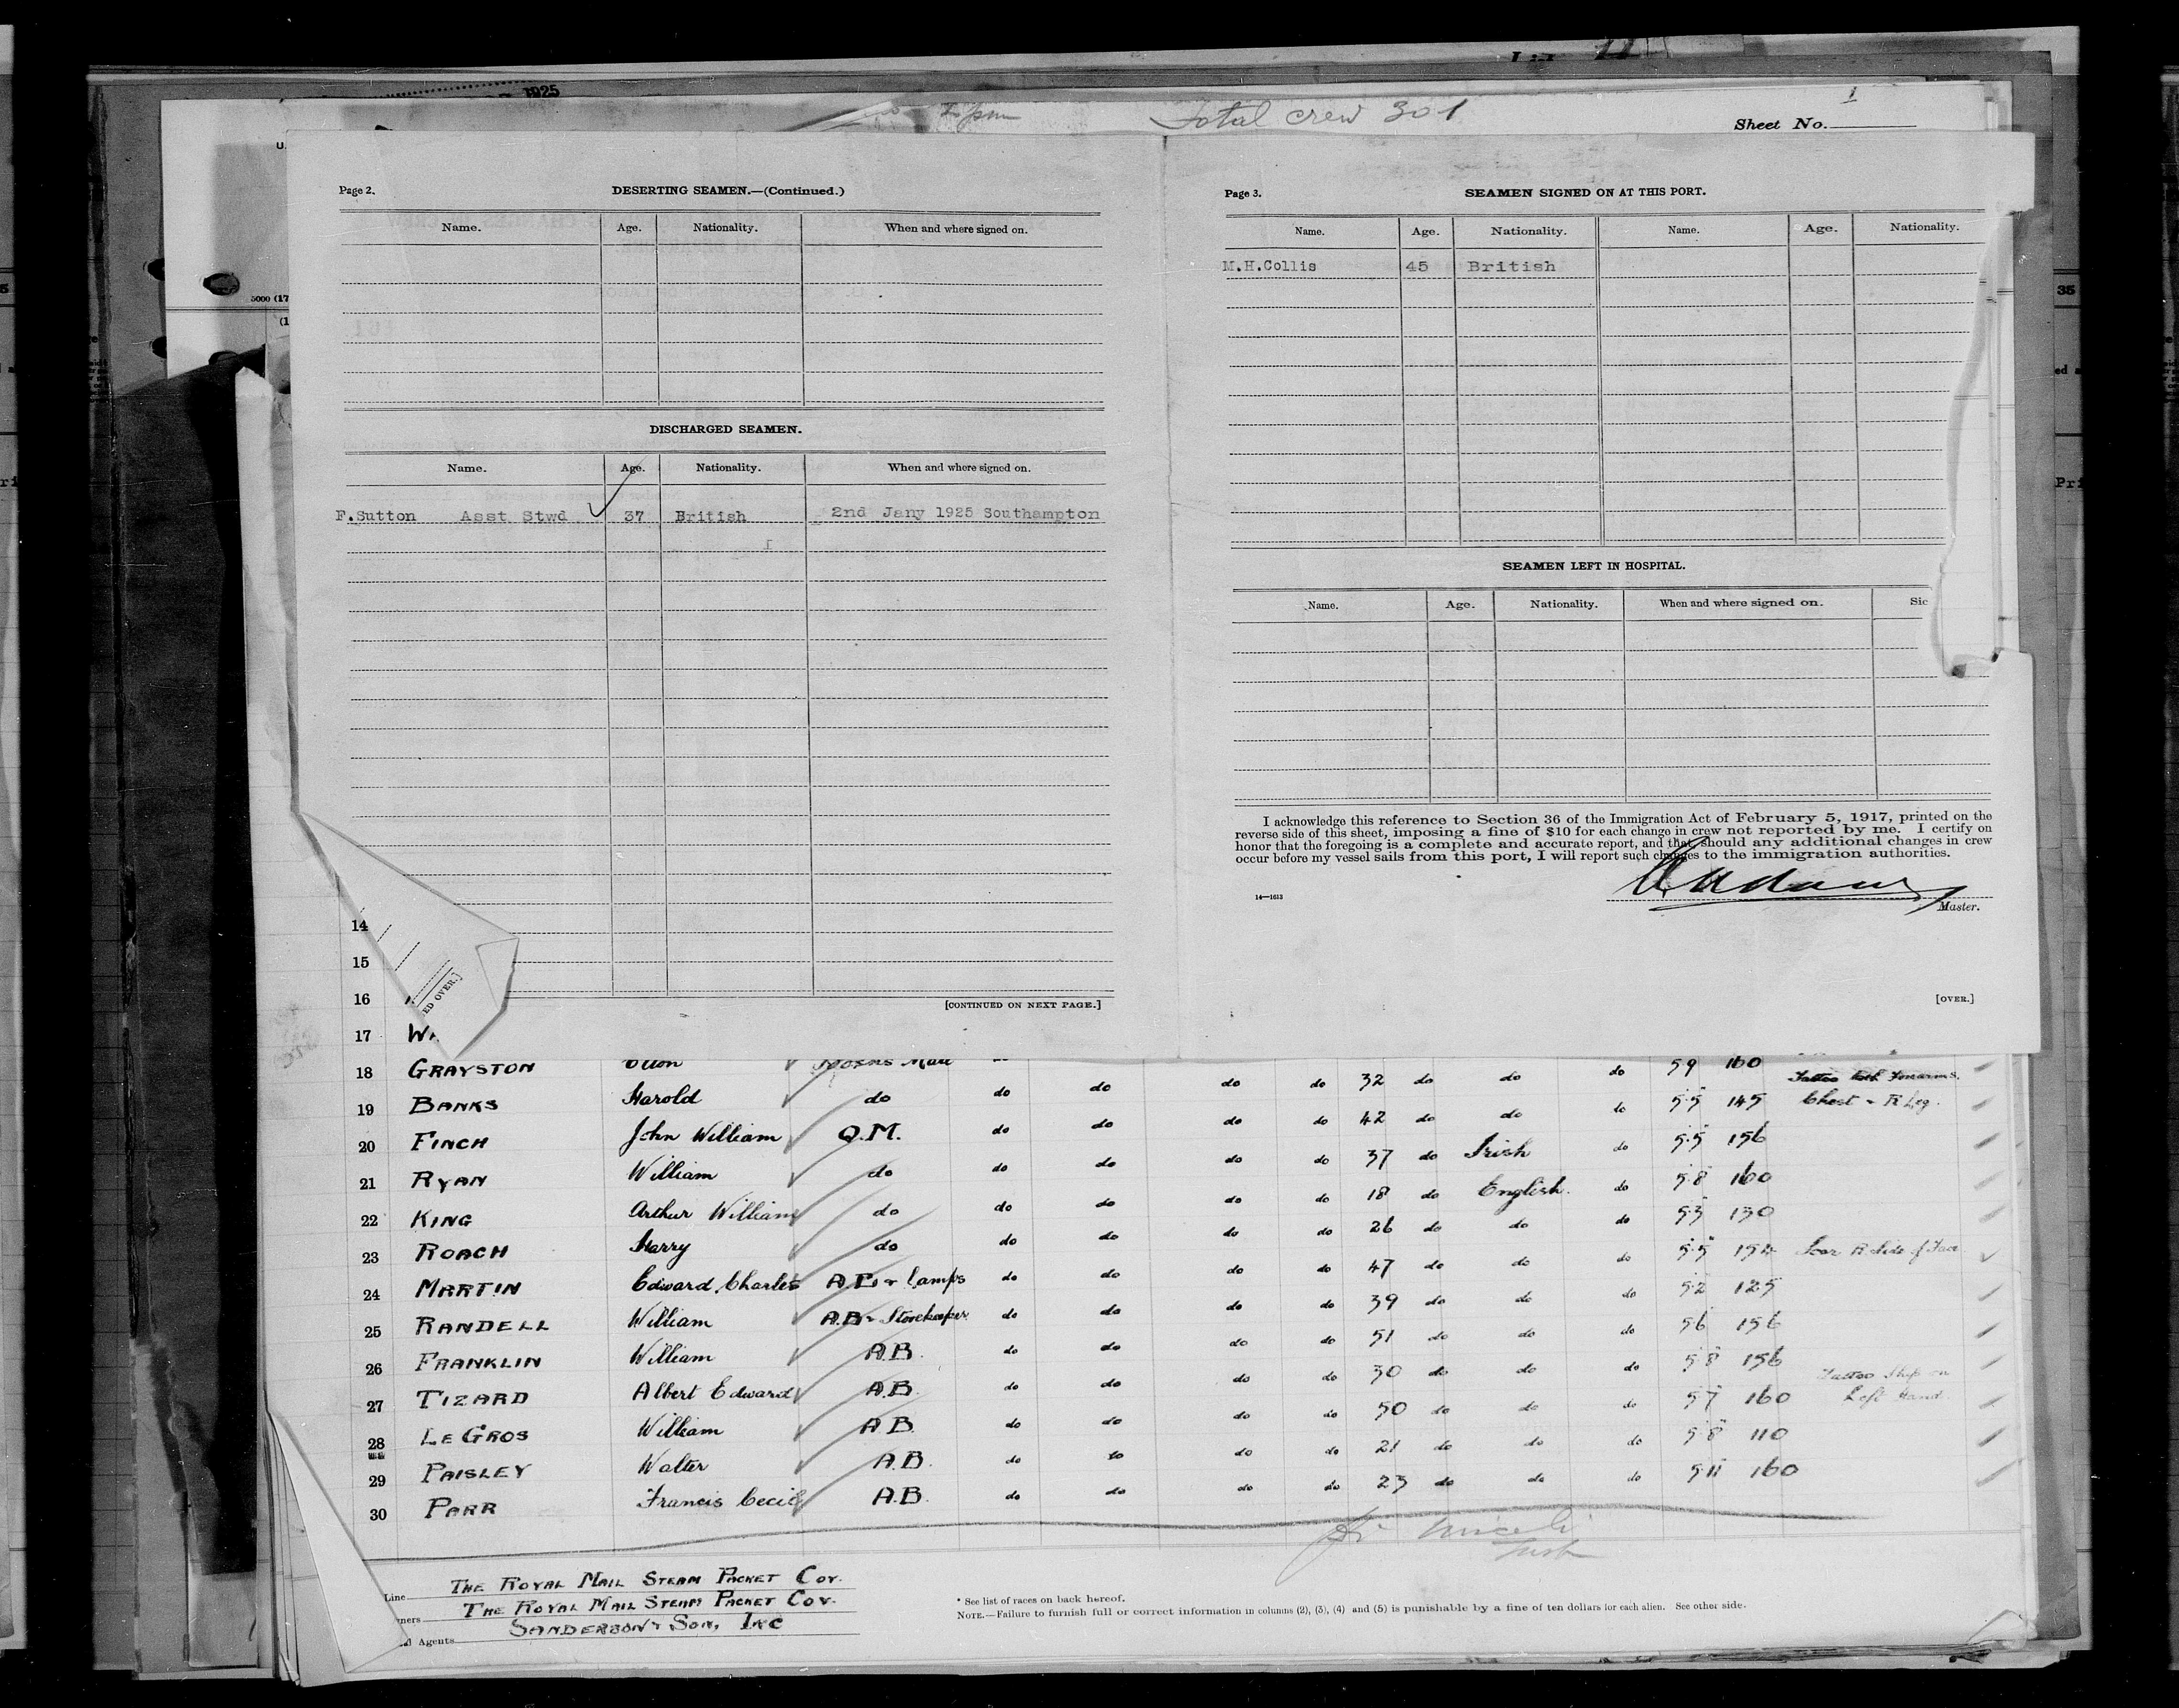 1925
Total crew 301
1
Sheet No.
Page 2.
DESERTING SEAMEN.—(Continued.)
Name. Age. Nationality. When and where signed on.
DISCHARGED SEAMEN.
Name. Age. Nationality. When and where signed on.
F.Sutton Asst Stwd 37 British 2nd Jany 1925 Southampton
[CONTINUED ON NEXT PAGE.]
Page 3.
SEAMEN SIGNED ON AT THIS PORT.
Name. Age. Nationality. Name. Age. Nationality.
M.H.Collis 45 British
SEAMEN LEFT IN HOSPITAL.
Name. Age. Nationality. When and where signed on. Sic
I acknowledge this reference to Section 36 of the Immigration Act of February 5, 1917, printed on the
reverse side of this sheet, imposing a fine of $10 for each change in crew not reported by me. I certify on
honor that the foregoing is a complete and accurate report, and that should any additional changes in crew
occur before my vessel sails from this port, I will report such changes to the immigration authorities.
14—1613
Master.
[OVER.]
5000 (17
14
15
16
ED OVER.]
17
18 GRAYSTON do 32 do do do 5·9 160
19 BANKS Harold do do do do do 42 do do do 5·5 145 Tattoo both Forearms. Chest - R Leg.
20 FINCH John William Q.M. do do do do 37 do Irish do 5·5 156
21 RYAN William do do do do do 18 do English. do 5·8 160
22 KING Arthur William do do do do do 26 do do do 5·3 130
23 ROACH Harry do do do do do 47 do do do 5·5 154 Scar R. Side of Face
24 MARTIN Edward Charles A.B. & Lamps do do do do 39 do do do 5·2 125
25 RANDELL William A.B. & Storekeeper do do do do 51 do do do 5·6 156
26 FRANKLIN William A.B. do do do do 30 do do do 5·8 156
27 TIZARD Albert Edward A.B. do do do do 50 do do do 5·7 160 Tattoo Ship on Left Hand.
28 LE GROS William A.B. do do do do 21 do do do 5·8 110
29 PAISLEY Walter A.B. do do do do 23 do do do 5·11 160
30 PARR Francis Cecil A.B. do do do do
Line THE ROYAL MAIL STEAM PACKET COY.
ners THE ROYAL MAIL STEAM PACKET COY.
Agents SANDERSON & SON, INC
* See list of races on back hereof.
NOTE.—Failure to furnish full or correct information in columns (2), (3), (4) and (5) is punishable by a fine of ten dollars for each alien. See other side.